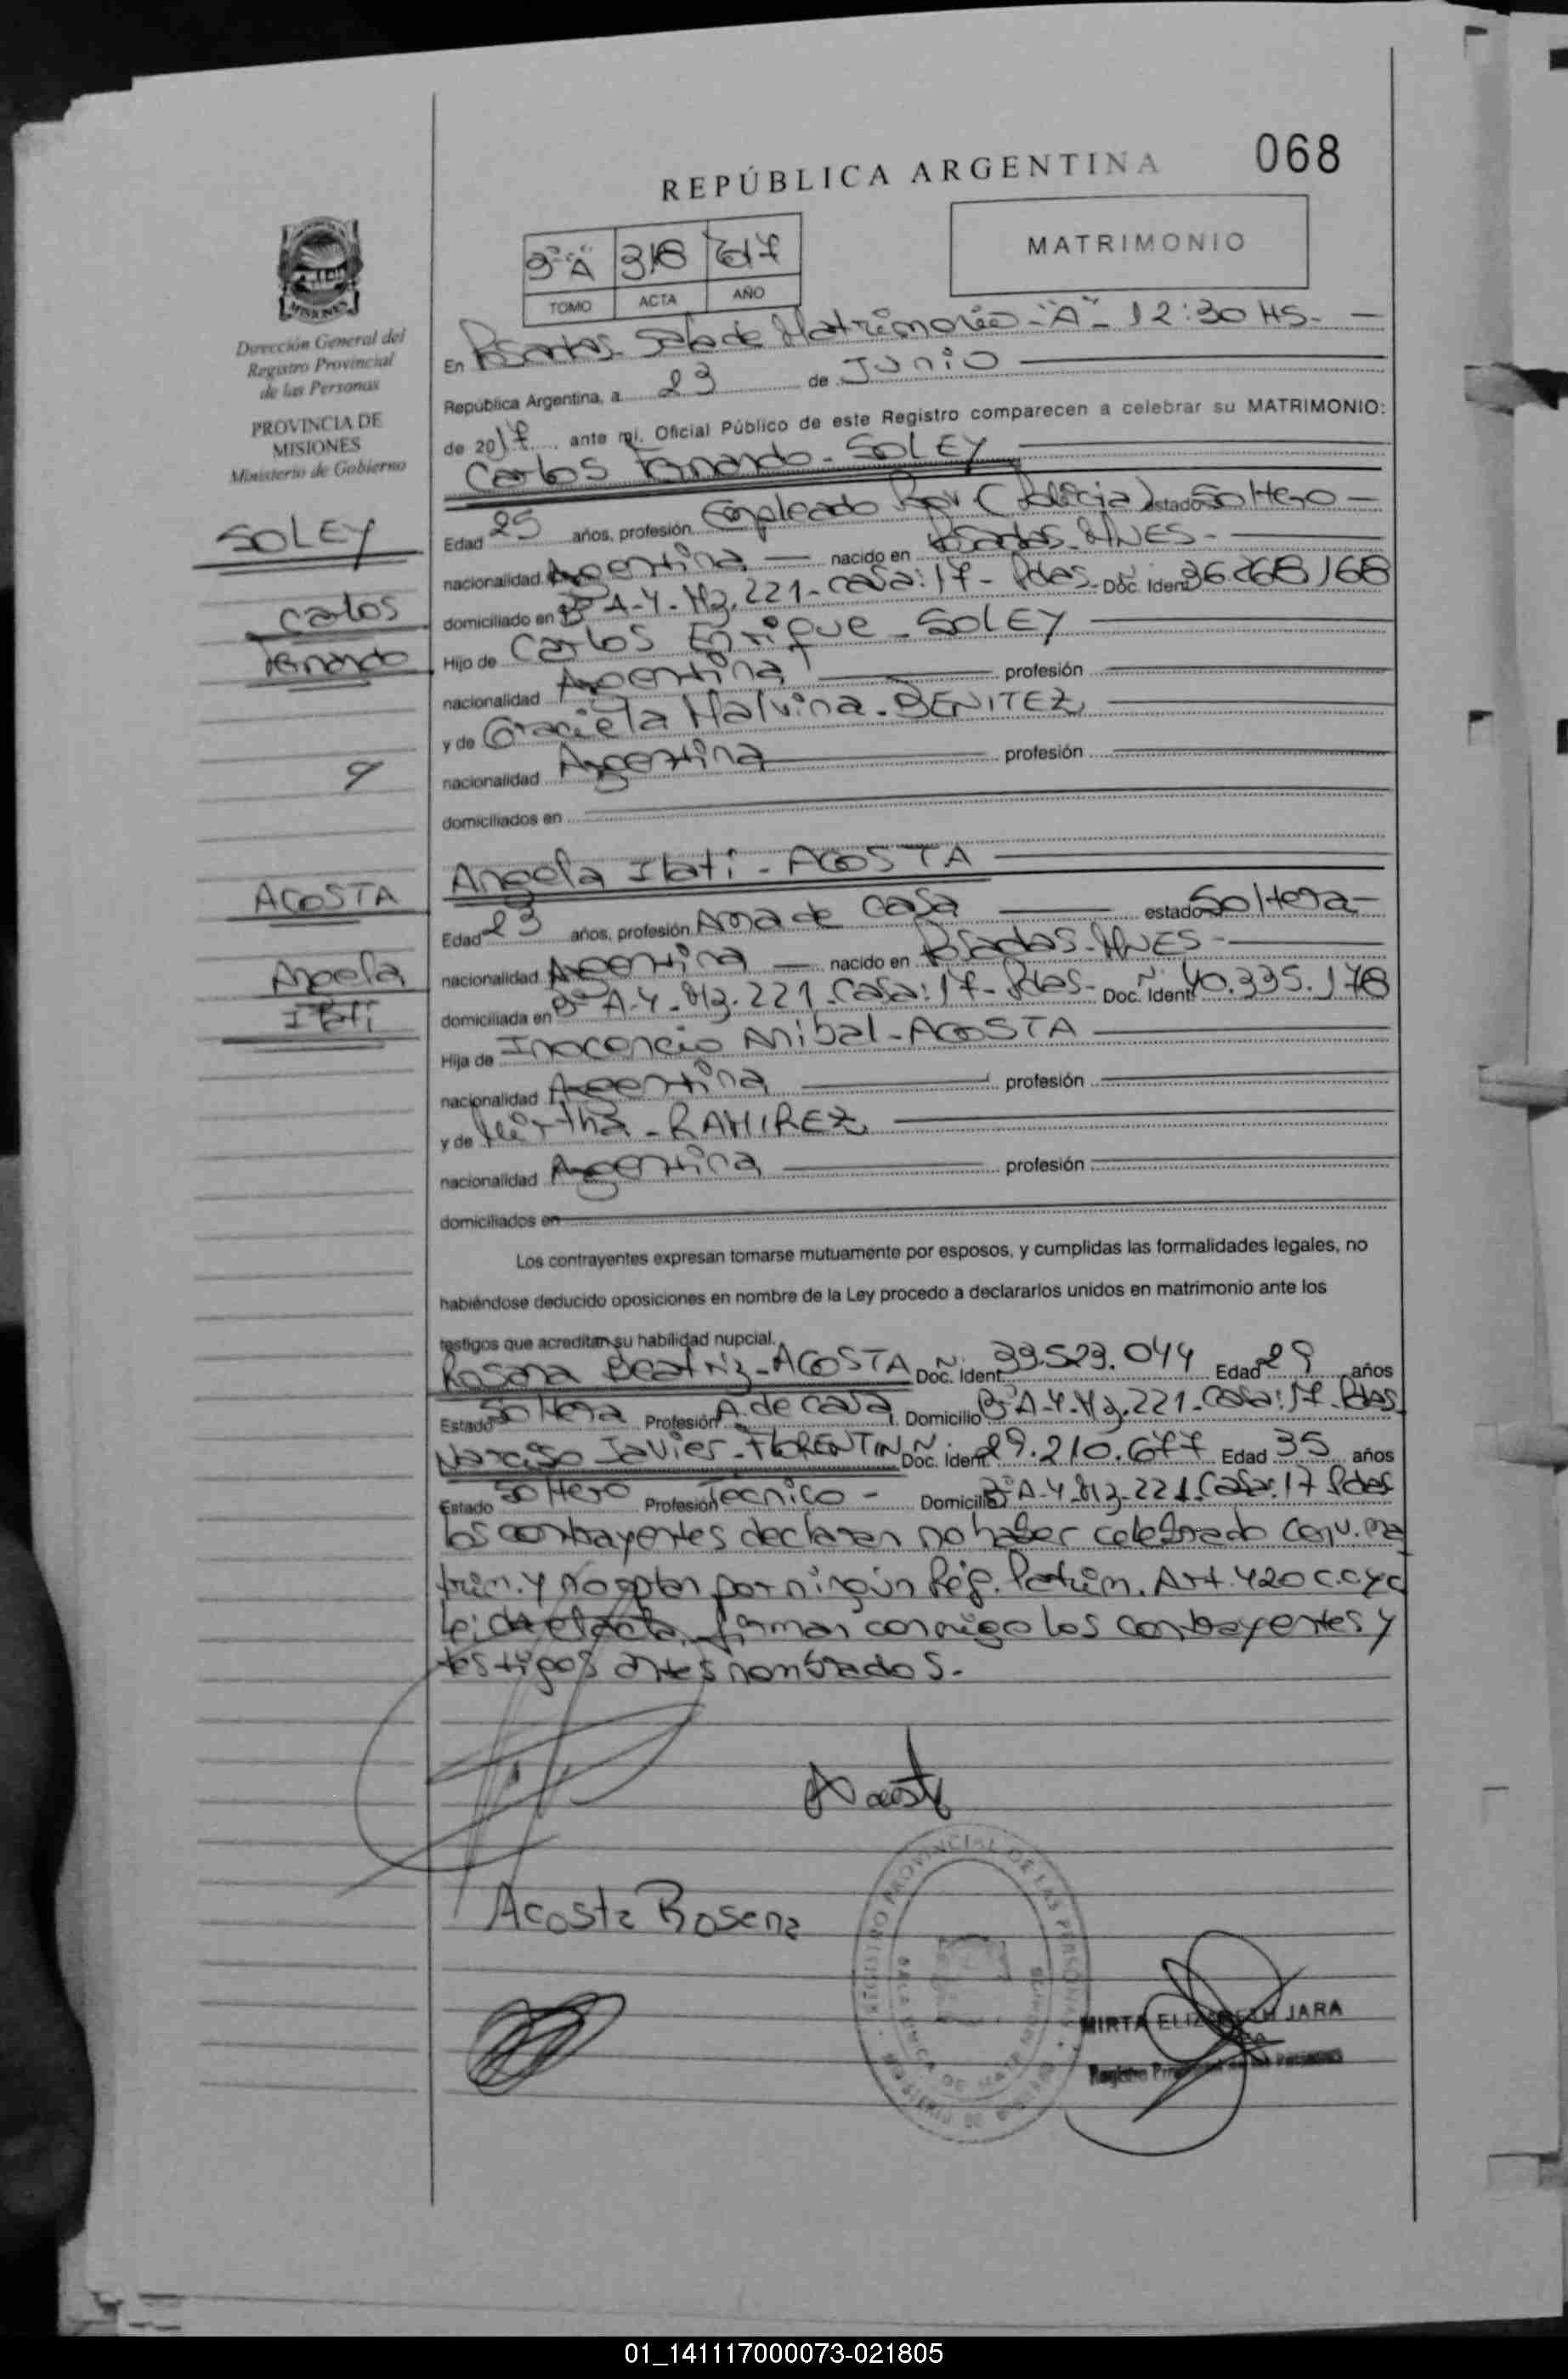 068
REPÚBLICA ARGENTINA
MATRIMONIO
3º "A" 318 2017
TOMO ACTA AÑO
MISIONES
Dirección General del
Registro Provincial
de las Personas
PROVINCIA DE
MISIONES
Ministerio de Gobierno
En Posadas - Sala de Matrimonio - "A" - 12:30 HS. -
República Argentina, a 23 de Junio
de 2017 ante mi, Oficial Público de este Registro comparecen a celebrar su MATRIMONIO:
Carlos Fernando - SOLEY
SOLEY
Carlos
Fernando
Edad 25 años, profesión Empleado Prov (Policia) estado Soltero -
nacionalidad Argentina - nacido en Posadas - MNES. -
domiciliado en Bº A-4 - Mz. 221 - casa: 17 - Pdas - Doc. Ident. 36.268.168
Hijo de Carlos Enrique - SOLEY
nacionalidad Argentina profesión
y de Graciela Malvina - BENITEZ
nacionalidad Argentina profesión
domiciliados en
y
Angela Itati - ACOSTA
ACOSTA
Angela
Itati
Edad 23 años, profesión Ama de casa estado Soltera -
nacionalidad Argentina - nacido en Posadas - MNES -
domiciliada en Bº A-4 - Mz. 221 - Casa: 17 - Pdas - Doc. Ident. 40.335.178
Hija de Inocencio Anibal - ACOSTA
nacionalidad Argentina profesión
y de Mirtha - RAMIREZ
nacionalidad Argentina profesión
domiciliados en
Los contrayentes expresan tomarse mutuamente por esposos, y cumplidas las formalidades legales, no
habiéndose deducido oposiciones en nombre de la Ley procedo a declararlos unidos en matrimonio ante los
testigos que acreditan su habilidad nupcial.
Rosana Beatriz - ACOSTA Doc. Ident. 33.523.044 Edad 29 años
Estado Soltera Profesión A. de casa Domicilio Bº A-4 - Mz. 221 - Casa: 17 - Pdas
Narciso Javier - FLORENTIN Doc. Ident. 29.210.677 Edad 35 años
Estado Soltero Profesión Tecnico - Domicilio Bº A-4 - Mz - 221 - Casa: 17 Pdas
los contrayentes declaran no haber celebrado conv. ma
trim. y no optan por ningún Rég. Patrim. Art. 420 C.C y C
Leida el acta, firman conmigo los contrayentes y
testigos antes nombrados.
Acosta
Acosta Rosana
REGISTRO PROVINCIAL DE LAS PERSONAS
MIRTA ELIZABETH JARA
Registro Provincial de las Personas
01_141117000073-021805